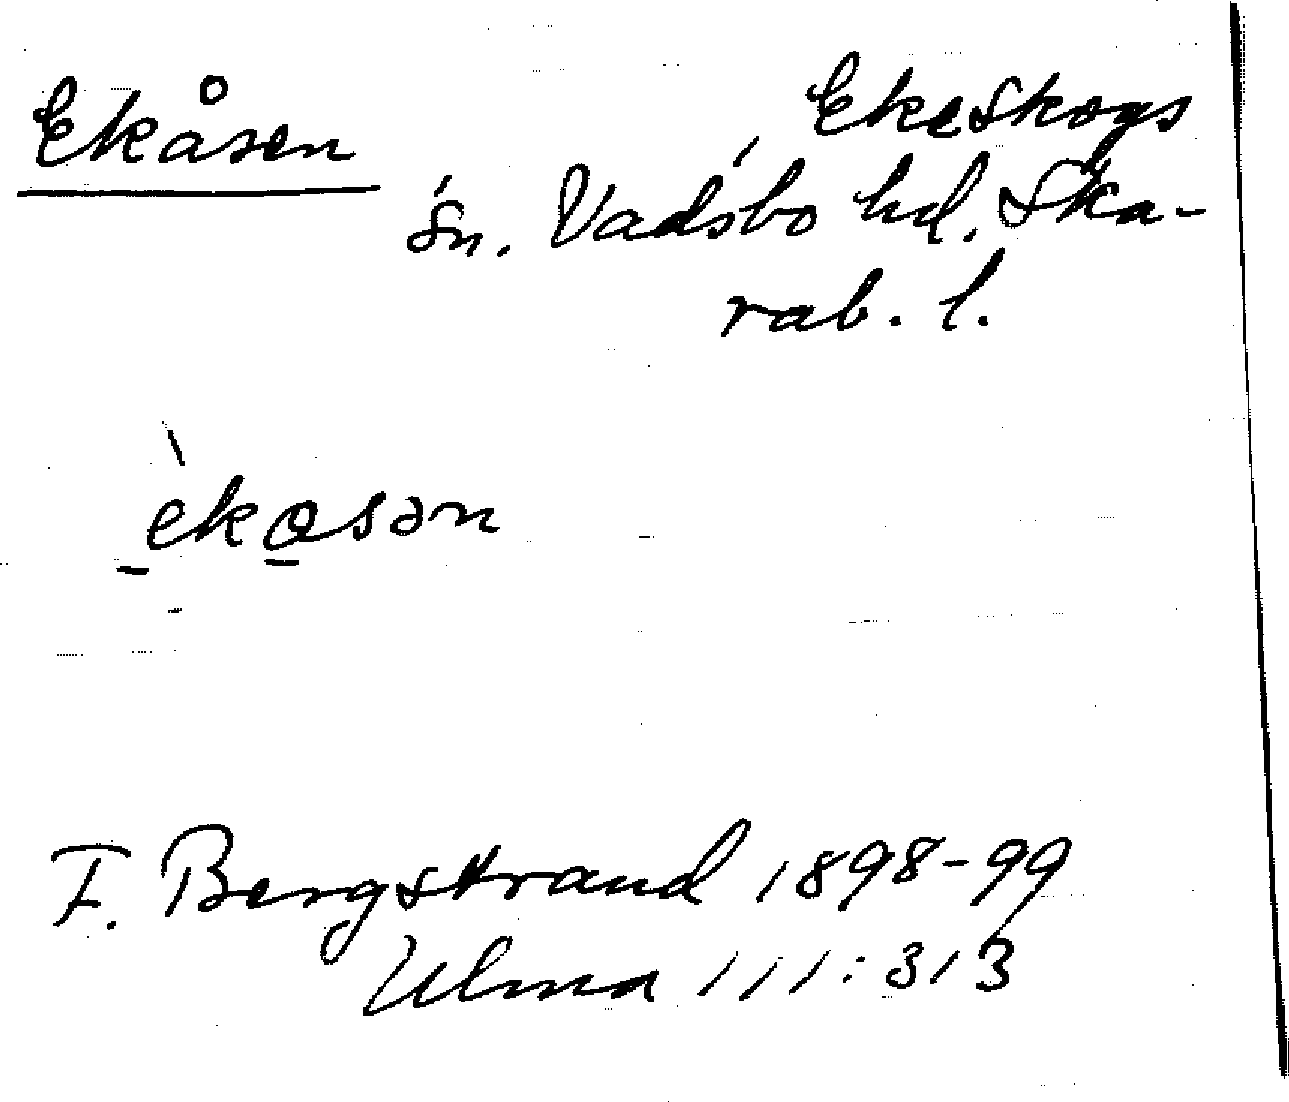 Ekåsen
Ekeskogs
sn. Vadsbo hd. Ska-
rab. l.
èkåsən
F. Bergstrand 1898-99
Ulma 111:313